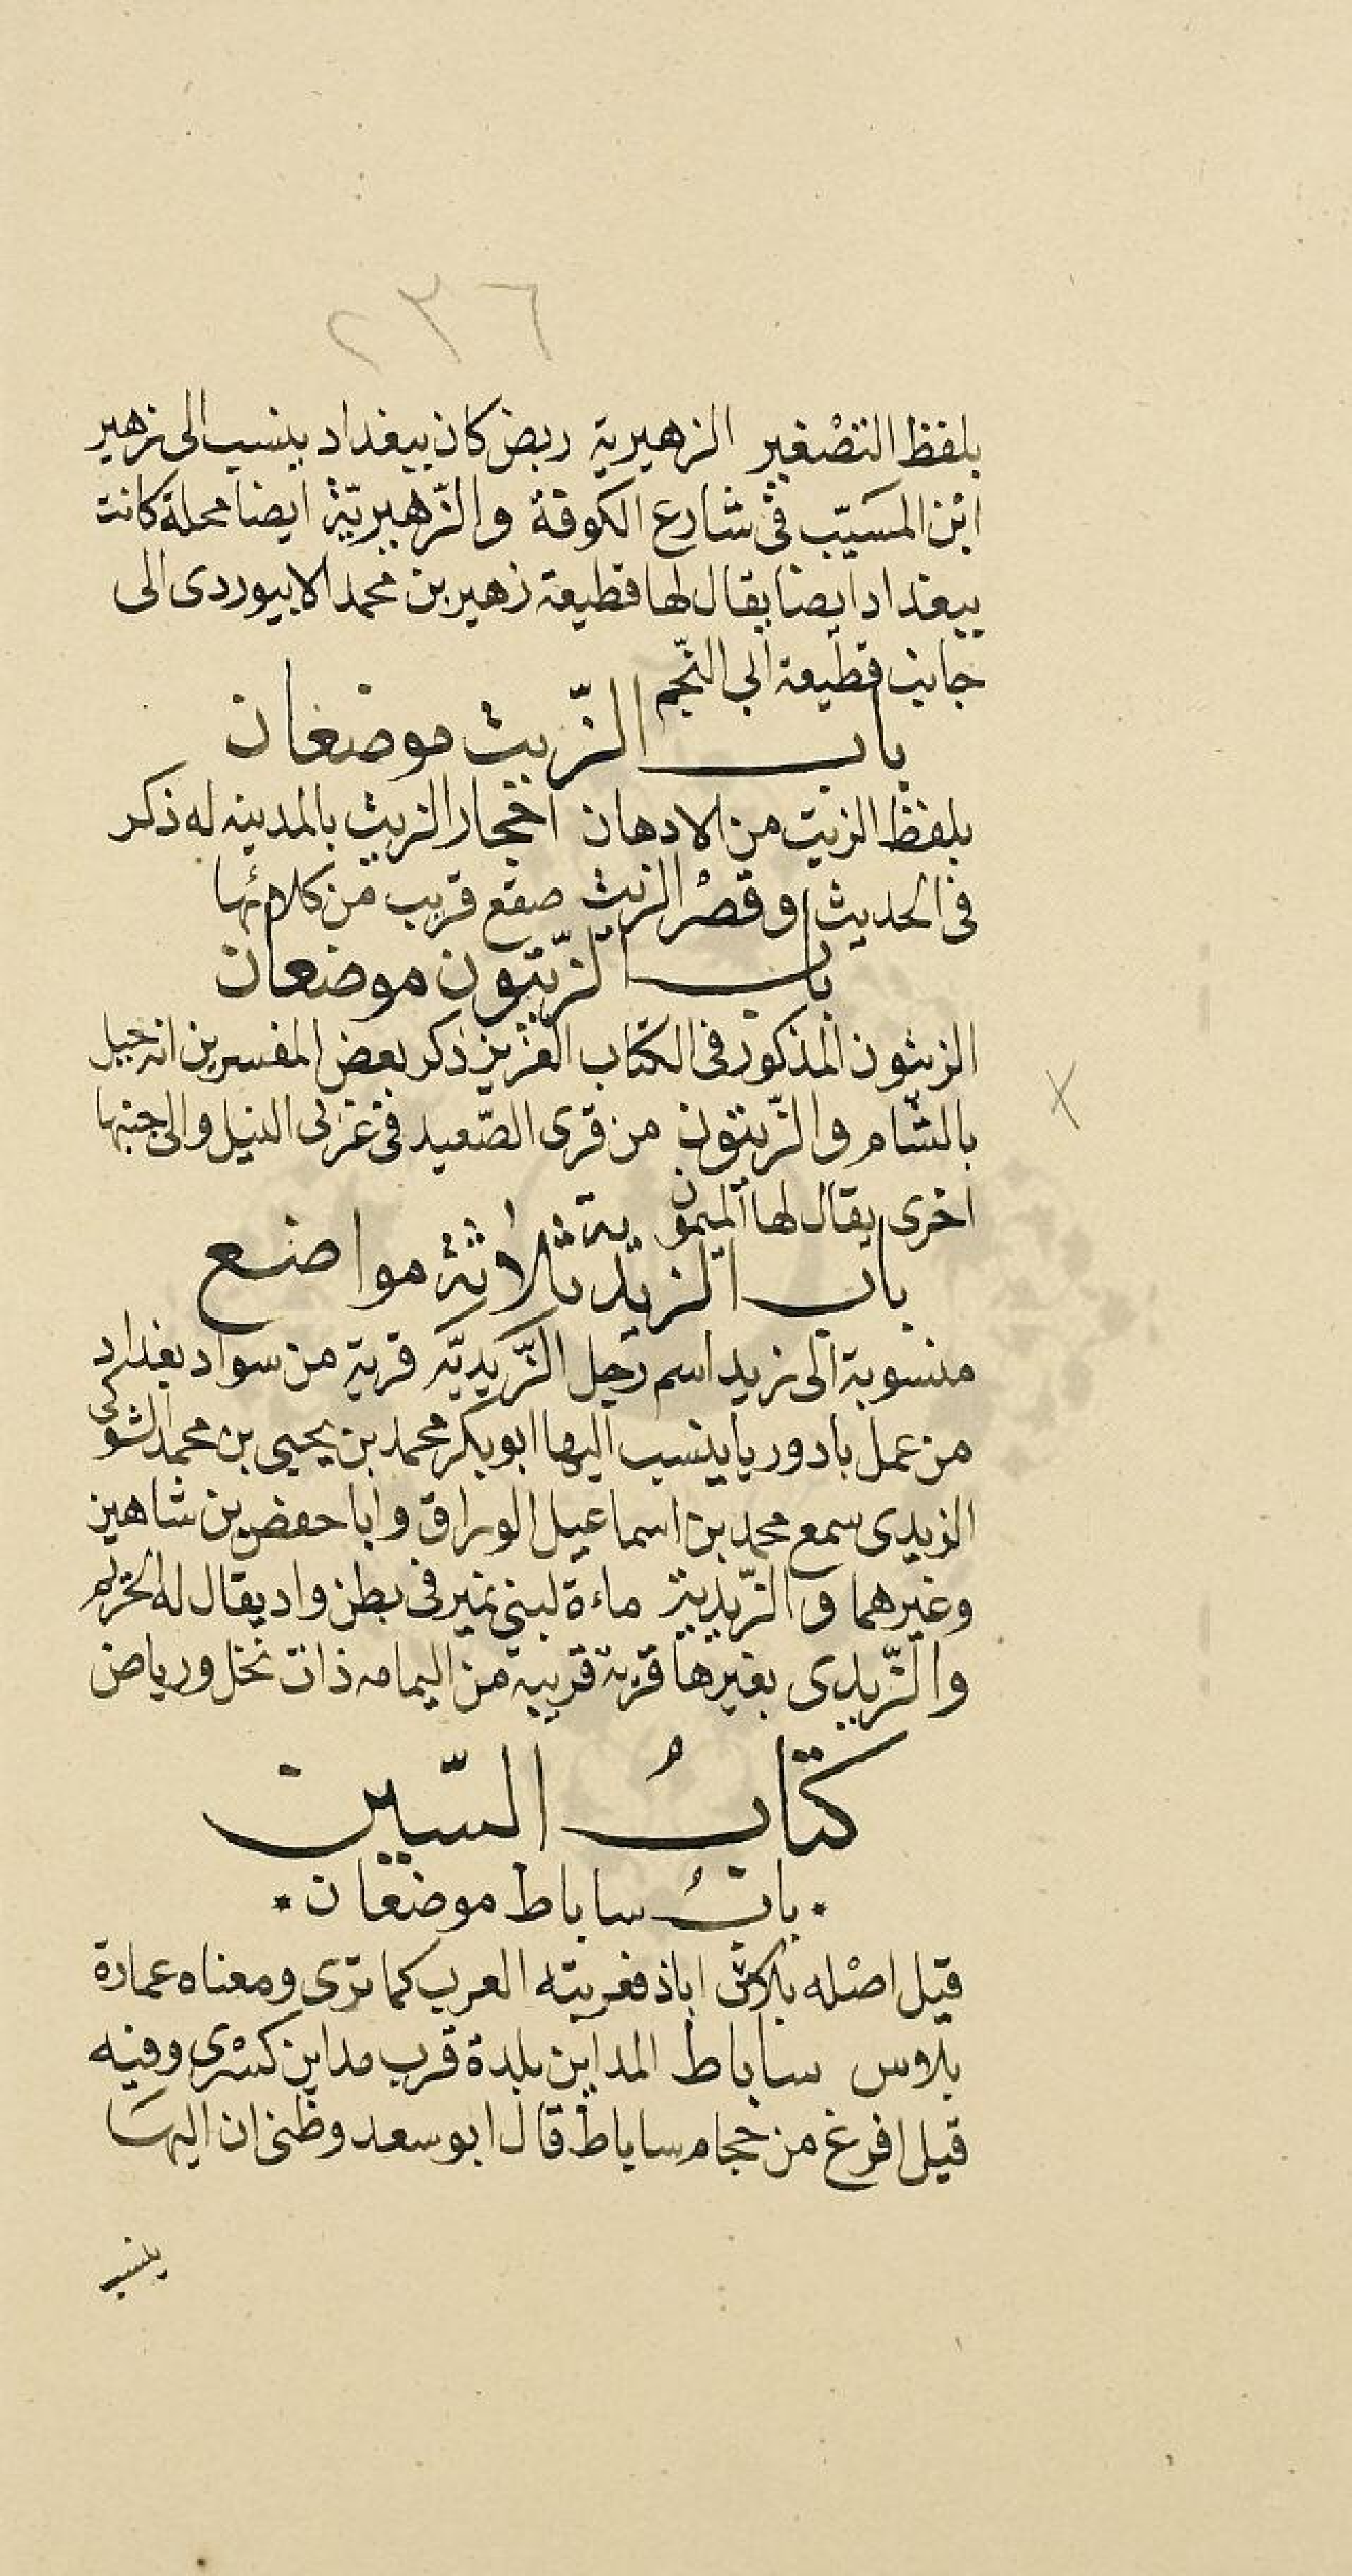 ٢٣٦
بلفظ التصْغير الزهيرية ربض كان ببغداد ينسب الى زهير
ابْن المسَيّب فى شارع الكوفة والزّهيريّة ايضا محلة كانت
ببغداد ايضا يقال لها قطيعة زهير بن محمد الابيوردى الى
جانب قطيعة ابي النّجم
باب الزّيت موضعان
بلفظ الزيت من الادهان احجار الزيت بالمدينه له ذكر
فى الحديث وقصْر الزيت صقع قريب من كلائها
باب الزّيتون موضعان
الزيتون المذكور فى الكتاب العزيز ذكر بعض المفسرين انه جبل
بالشّام والزّيتون من قرى الصّعيد فى غربى النيل والى جنبها
اخرى يقال لها الميمون
باب الزيدية ثلاثة مواضع
منسوبة الى زيد اسم رجل الزَّيديَّه قرية من سواد بغداد
من عمل بادوريا ينسب اليها ابو بكر محمد بن يحيى بن محمد الشوكى
الزيدى سمع محمد بن اسماعيل الوراق وابا حفص بن شاهين
وغيرهما والزّيدية ماءة لبنى نمير فى بطن واد يقال له الحريم
والزّيدى بغيرها قرية قريبة من اليمامه ذات نخل ورياض
كتابُ السّين
* بابُ ساباط موضعان *
قيل اصْله بلاش اباذ فعربته العرب كما ترى ومعناه عمارة
بلاوس ساباط المداين بلدة قرب مداين كسْرى وفيه
قيل افرغ من حجام ساباط قال ابو سعد وظنى ان اليهَا
ينسب